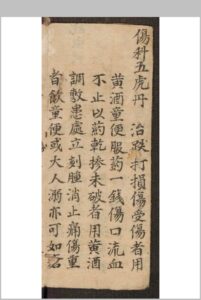 傷科五虎丹　治跌打損傷受傷者用
黄酒童便服药一錢傷口流血
不止以药乾摻未破者用黄酒
調敷患處立刻腫消止痛傷重
者飲童便或大人溺亦可如若